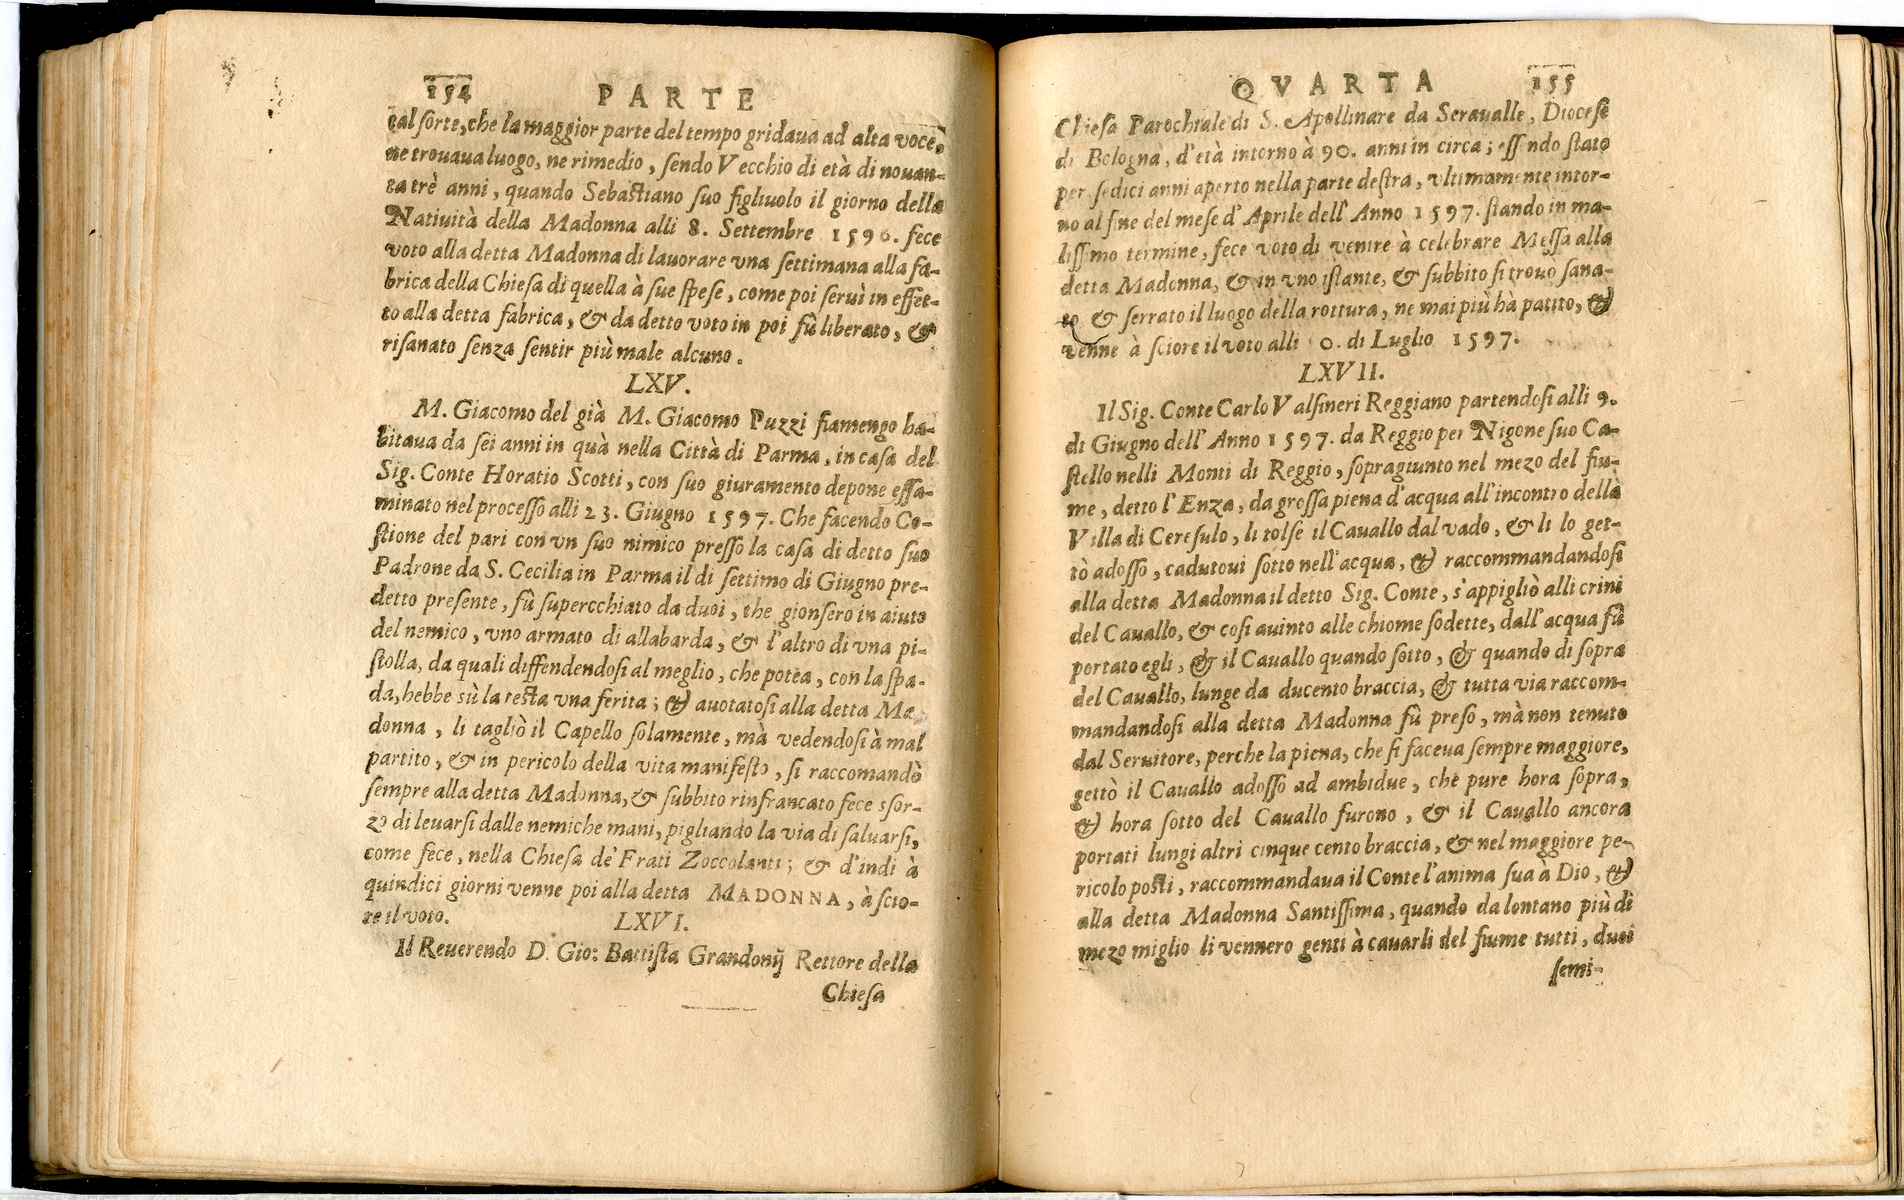 154 PARTE
tal sorte, che la maggior parte del tempo gridaua ad alta voce,
ne trouaua luogo, ne rimedio, sendo Vecchio di età di nouan-
ta trè anni, quando Sebastiano suo figliuolo il giorno della
Natiuità della Madonna alli 8. Settembre 1596. fece
voto alla detta Madonna di lauorare vna settimana alla fa-
brica della Chiesa di quella à sue spese, come poi seruì in effet-
to alla detta fabrica, & da detto voto in poi fù liberato, &
risanato senza sentir più male alcuno.
LXV.
M. Giacomo del già M. Giacomo Puzzi fiamengo ha-
bitaua da sei anni in quà nella Città di Parma, in casa del
Sig. Conte Horatio Scotti, con suo giuramento depone essa-
minato nel processo alli 23. Giugno 1597. Che facendo Co-
stione del pari con vn suo nimico presso la casa di detto suo
Padrone da S. Cecilia in Parma il di settimo di Giugno pre-
detto presente, fù supercchiato da duoi, che gionsero in aiuto
del nemico, vno armato di allabarda, & l'altro di vna pi-
stolla, da quali diffendendosi al meglio, che potea, con la spa-
da, hebbe sù la testa vna ferita; & auotatosi alla detta Ma-
donna, li tagliò il Capello solamente, mà vedendosi à mal
partito, & in pericolo della vita manifesto, si raccomandò
sempre alla detta Madonna, & subbito rinfrancato fece sfor-
zo di leuarsi dalle nemiche mani, pigliando la via di saluarsi,
come fece, nella Chiesa de' Frati Zoccolanti; & d'indi à
quindici giorni venne poi alla detta MADONNA, à scio-
re il voto. LXVI.
Il Reuerendo D. Gio: Battista Grandonij Rettore della
Chiesa
QVARTA 155
Chiesa Parochiale di S. Apollinare da Seraualle, Diocese
di Bologna, d'età intorno à 90. anni in circa; essendo stato
per sedici anni aperto nella parte destra, vltimamente intor-
no al fine del mese d'Aprile dell'Anno 1597. stando in ma-
lissimo termine, fece voto di venire à celebrare Messa alla
detta Madonna, & in vno istante, & subbito si trouo sana-
to & serrato il luogo della rottura, ne mai più hà patito, &
venne à sciore il voto alli 0. di Luglio 1597.
LXVII.
Il Sig. Conte Carlo Valsineri Reggiano partendosi alli 9.
di Giugno dell'Anno 1597. da Reggio per Nigone suo Ca-
stello nelli Monti di Reggio, sopragiunto nel mezo del fiu-
me, detto l'Enza, da grossa piena d'acqua all'incontro della
Villa di Ceresulo, li tolse il Cauallo dal vado, & li lo get-
tò adosso, cadutoui sotto nell'acqua, & raccommandandosi
alla detta Madonna il detto Sig. Conte, s'appigliò alli crini
del Cauallo, & cosi auinto alle chiome sodette, dall'acqua fù
portato egli, & il Cauallo quando sotto, & quando di sopra
del Cauallo, lunge da ducento braccia, & tutta via raccom-
mandandosi alla detta Madonna fù preso, mà non tenuto
dal Seruitore, perche la piena, che si faceua sempre maggiore,
gettò il Cauallo adosso ad ambidue, che pure hora sopra,
& hora sotto del Cauallo furono, & il Cauallo ancora
portati lungi altri cinque cento braccia, & nel maggiore pe-
ricolo posti, raccommandaua il Conte l'anima sua a Dio, &
alla detta Madonna Santissima, quando da lontano più di
mezo miglio li vennero genti à cauarli del fiume tutti, duoi
semi-